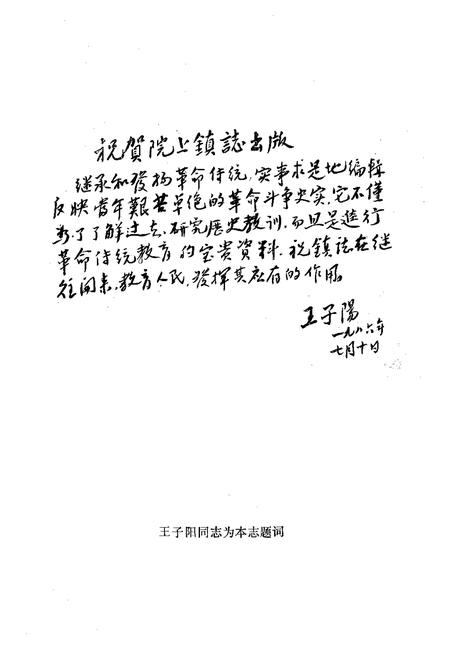 祝賀院上鎮誌出版
继承和發扬革命传统,实事求是地编辑
反映當年艱苦卓绝的革命斗争史实,它不僅
为了了解过去,研究歷史教训,而且是進行
革命传统教育的宝贵資料。祝鎮誌在继
往開来,教育人民,發挥其应有的作用。
王子陽
一九八六年
七月十日
王子阳同志为本志题词